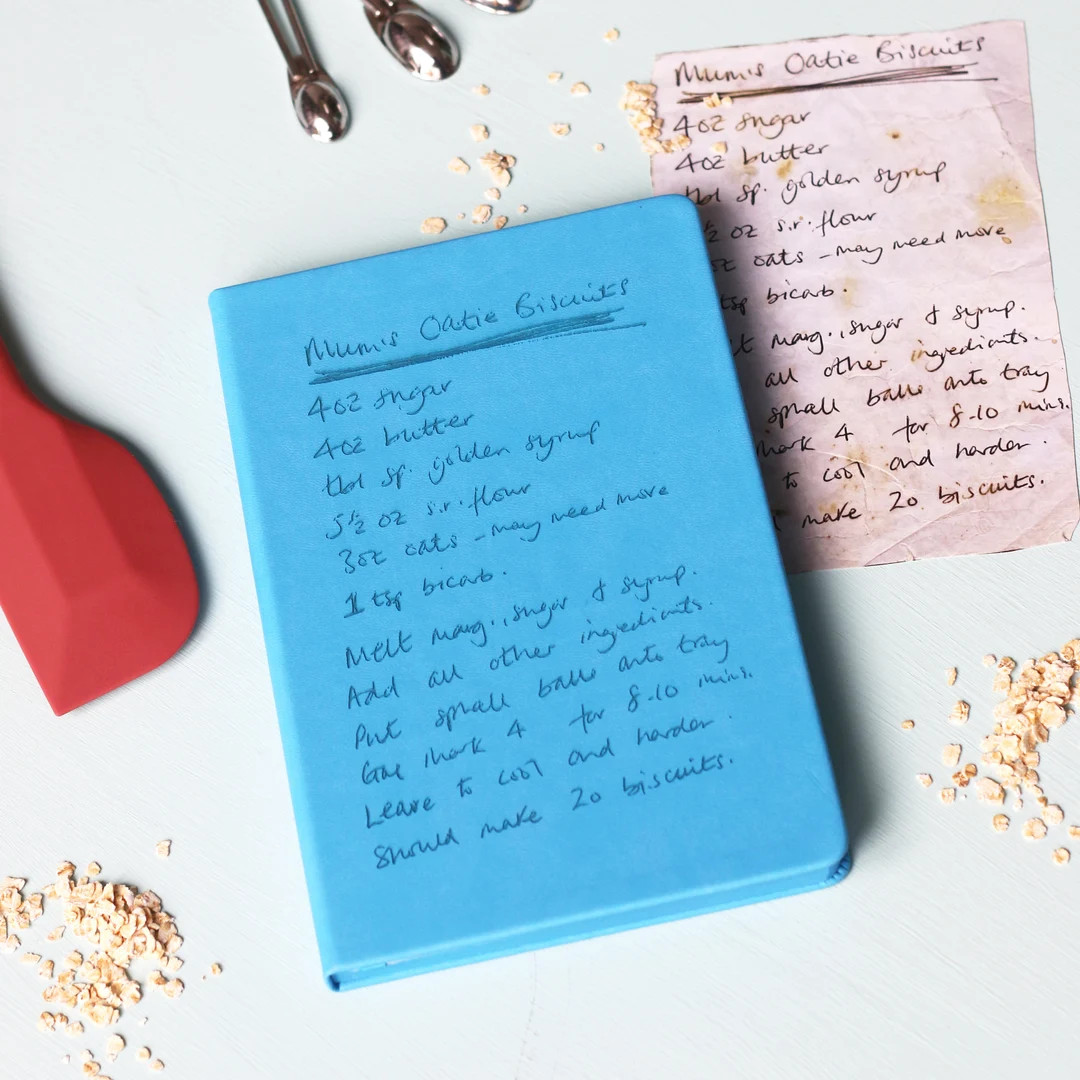 Mum's Oatie Biscuits
4oz sugar
4oz butter
tbl sp. golden syrup
5½ oz s.r. flour
3oz oats - may need more
1 tsp bicarb.
Melt marg., sugar & syrup.
Add all other ingredients.
Put small balls onto tray
Gas mark 4 for 8-10 mins.
Leave to cool and harden.
Should make 20 biscuits.
Mum's Oatie Biscuits
4oz sugar
4oz butter
tbl sp. golden syrup
½ oz s.r. flour
oz oats - may need more
tsp bicarb.
lt marg., sugar & syrup.
all other ingredients.
small balls onto tray
mark 4 for 8-10 mins.
to cool and harden.
make 20 biscuits.